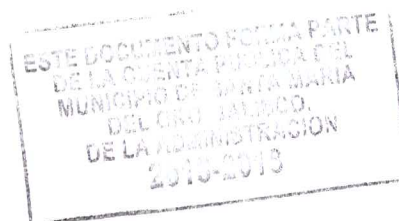 ESTE DOCUMENTO FORMA PARTE
DE LA CUENTA PUBLICA DEL
MUNICIPIO DE SANTA MARIA
DEL ORO JALISCO.
DE LA ADMINISTRACION